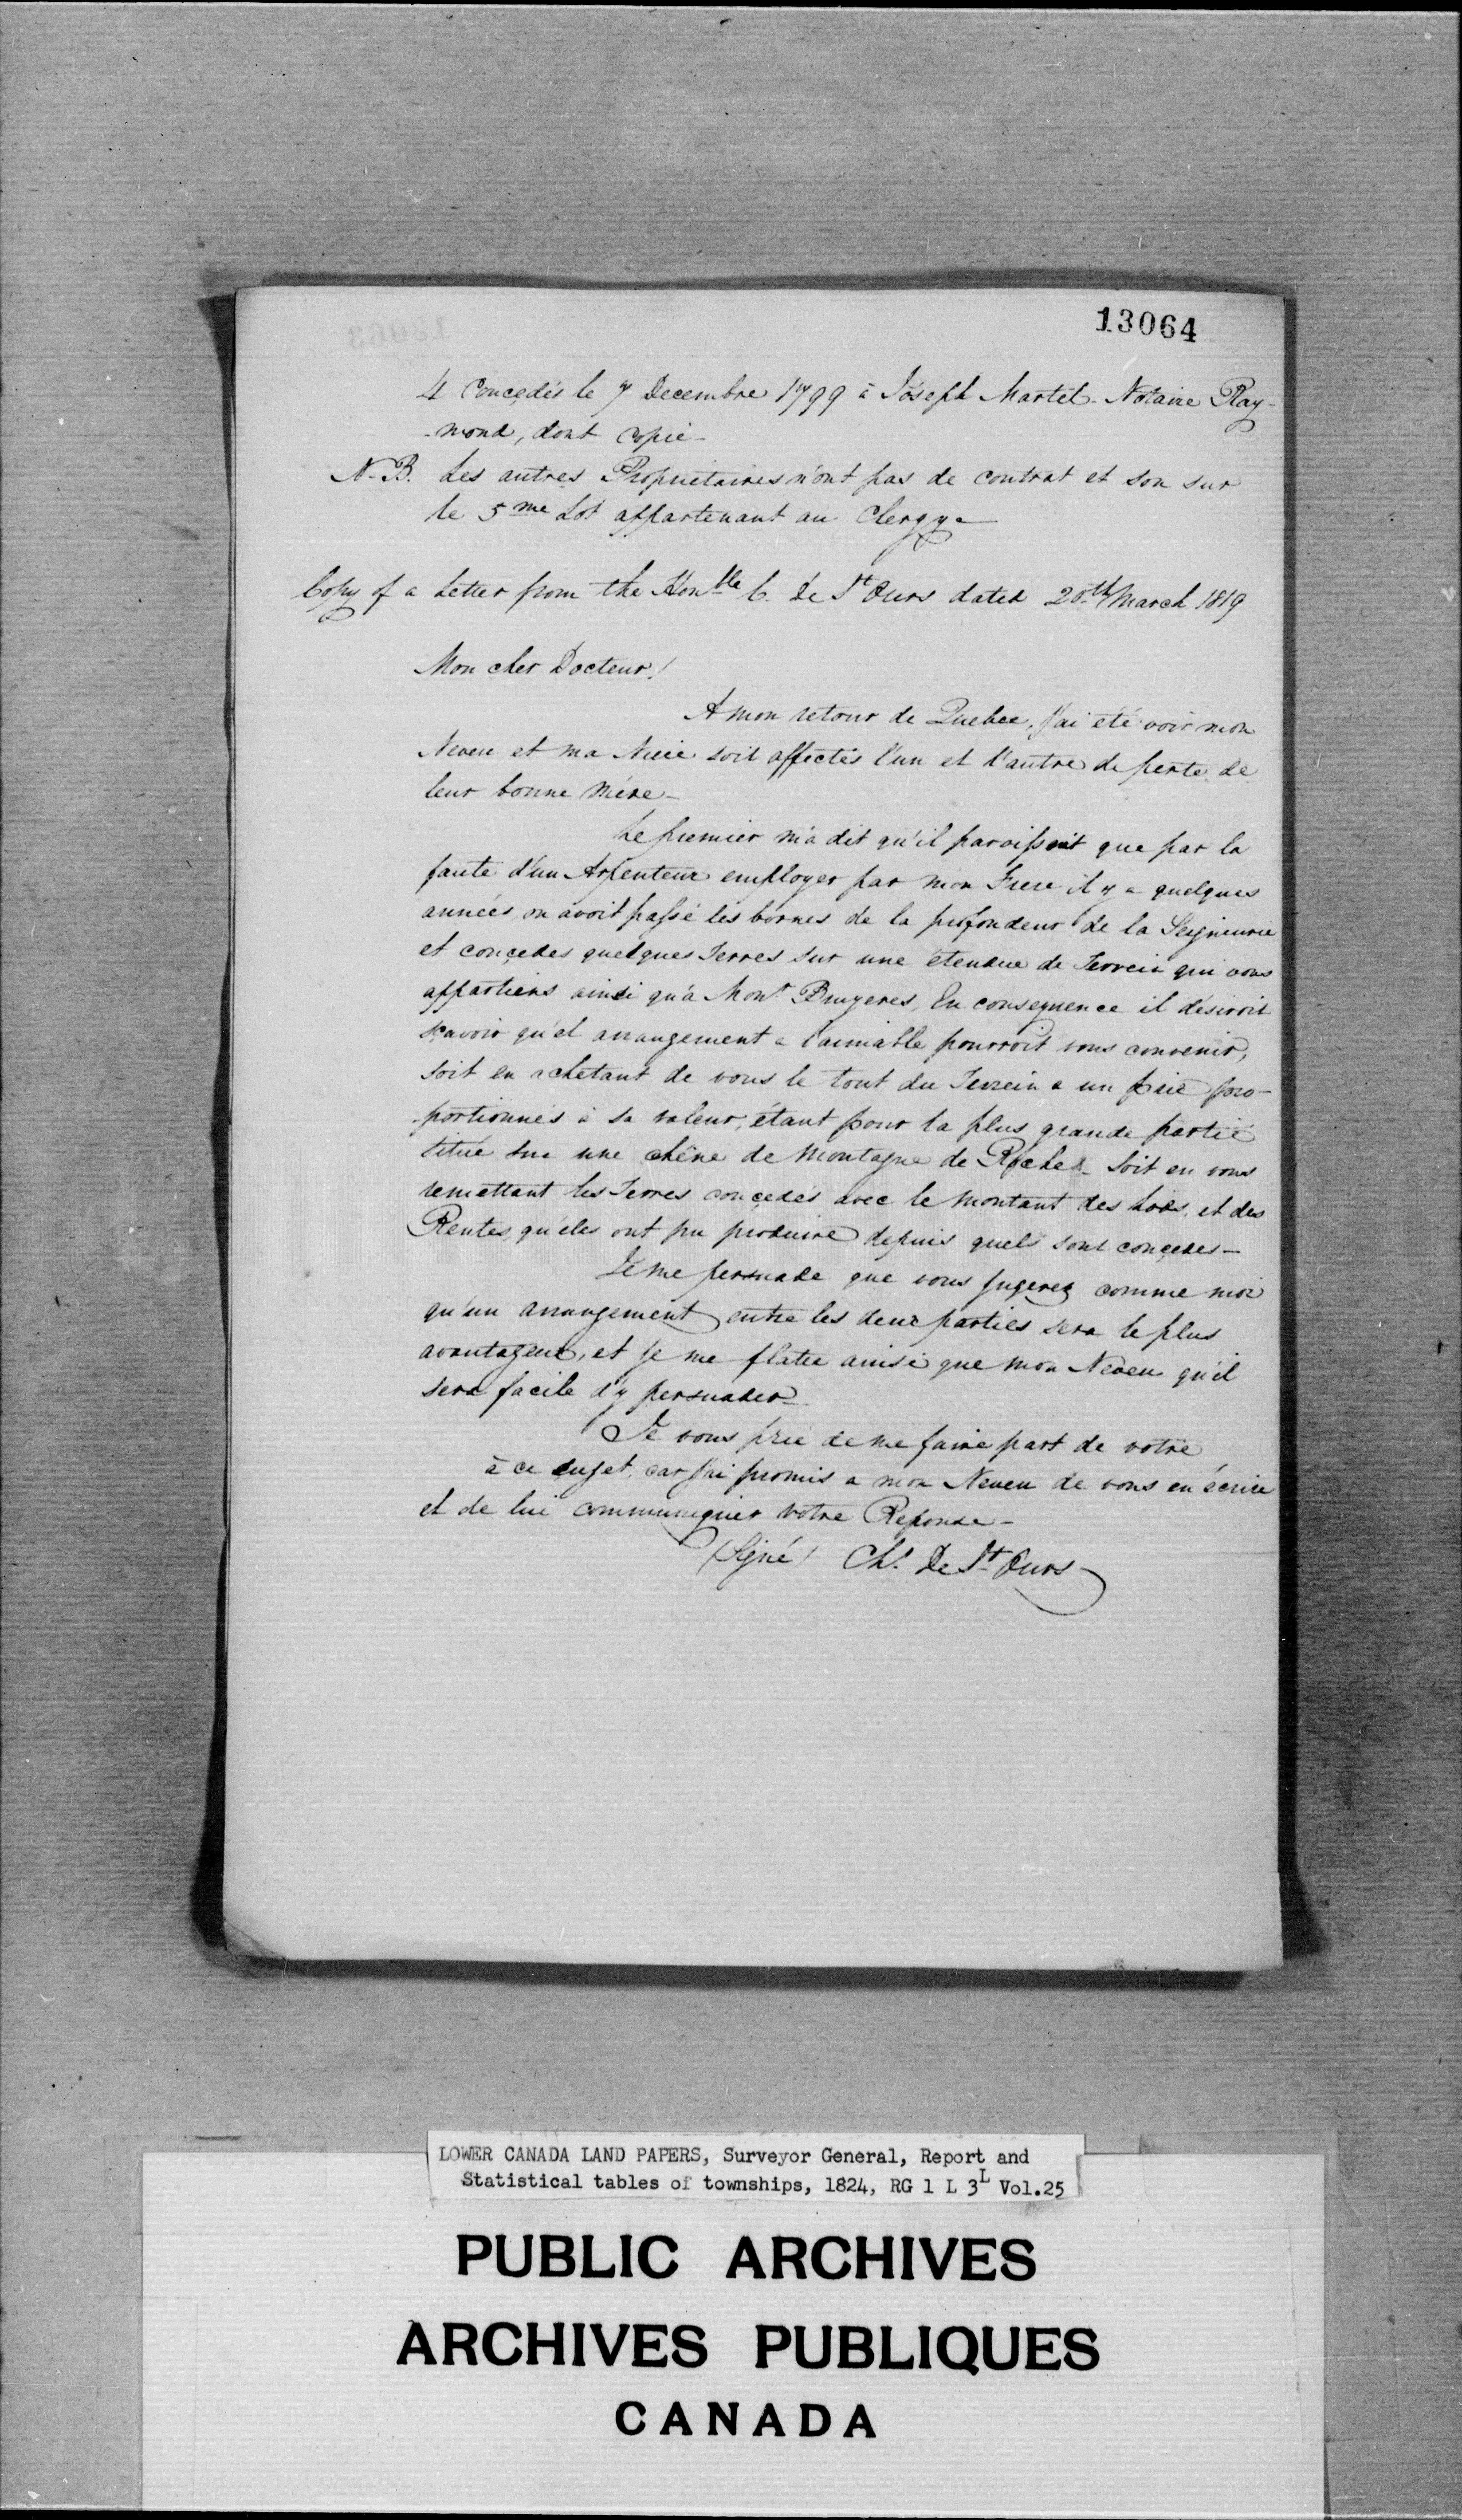 13064
4 Concedés le 7 Decembre 1799 à Joseph Martel - Notaire Ray-
-mond, dont copie -
N.B. Les autres Propriétaires n'ont pas de contrat et son sur
le 5me Lot appartenant au Clergy -
Copy of a Letter from the Honble C. De St Ours dated 20th March 1819
Mon cher Docteur,
A mon retour de Quebec, j'ai été voir mon
Neveu et ma Niece soit affectés l'un et l'autre de perte de
leur bonne Mére -
Le premier m'a dit qu'il paroissoit que par la
faute d'un Arpenteur employer par mon Frere il y a quelques
années on avoit passé les bornes de la profondeur de la Seigneurie
et conçedes quelques Terres sur une étendue de Terrein qui vous
appartiens ainsi qu'à Monr Bruyeres, En consequence il désiroit
sçavoir qu'el arrangement a l'aimable pourroit vous convenir,
soit en achetant de vous le tout du Terrein a un prix pro-
-portionnés à sa valeur, étant pour la plus grande partie
situé sur une chêne de Montagne de Roches - Soit en vous
remettant les Terres conçedés avec le montant des Lods, et des
Rentes, qu'eles ont pu produire depuis quels sont conçedes -
Je me persuade que vous jugerez comme moi
qu'un arrangement entre les deux parties sera le plus
avantageux, et je me flatte ainsi que mon Neveu qu'il
sera facile d'y persuader -
Je vous prie de me faire part de votre
à ce sujet, car j'ai promis a mon Neveu de vous en écrire
et de lui communiquer votre Reponse -
(Signé) Chs De St Ours
LOWER CANADA LAND PAPERS, Surveyor General, Report and
Statistical tables of townships, 1824, RG 1 L 3L Vol.25
PUBLIC ARCHIVES
ARCHIVES PUBLIQUES
CANADA